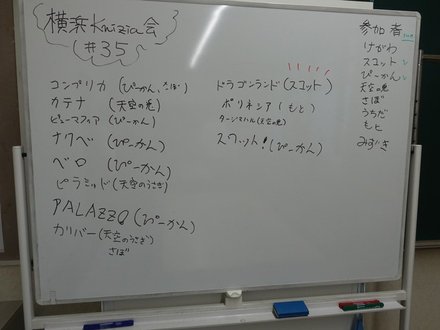 横浜Knizia会
#35
コンプリカ (ぴーかん、さば)
カテナ (天空の兎)
ヒューマスフィア (ぴーかん)
ナクベ (ぴーかん)
ベロ (ぴーかん)
ピラミッド (天空のうさぎ)
PALAZZO (ぴーかん)
カリバー (天空のうさぎ)
さば
ドラゴンランド (スコット)
ポリネシア (もと)
タージマハル (天空の兎)
スクット! (ぴーかん)
参加者
けがわ
スコット
ぴーかん
天空の兎
さば
うちだ
もと
みずき